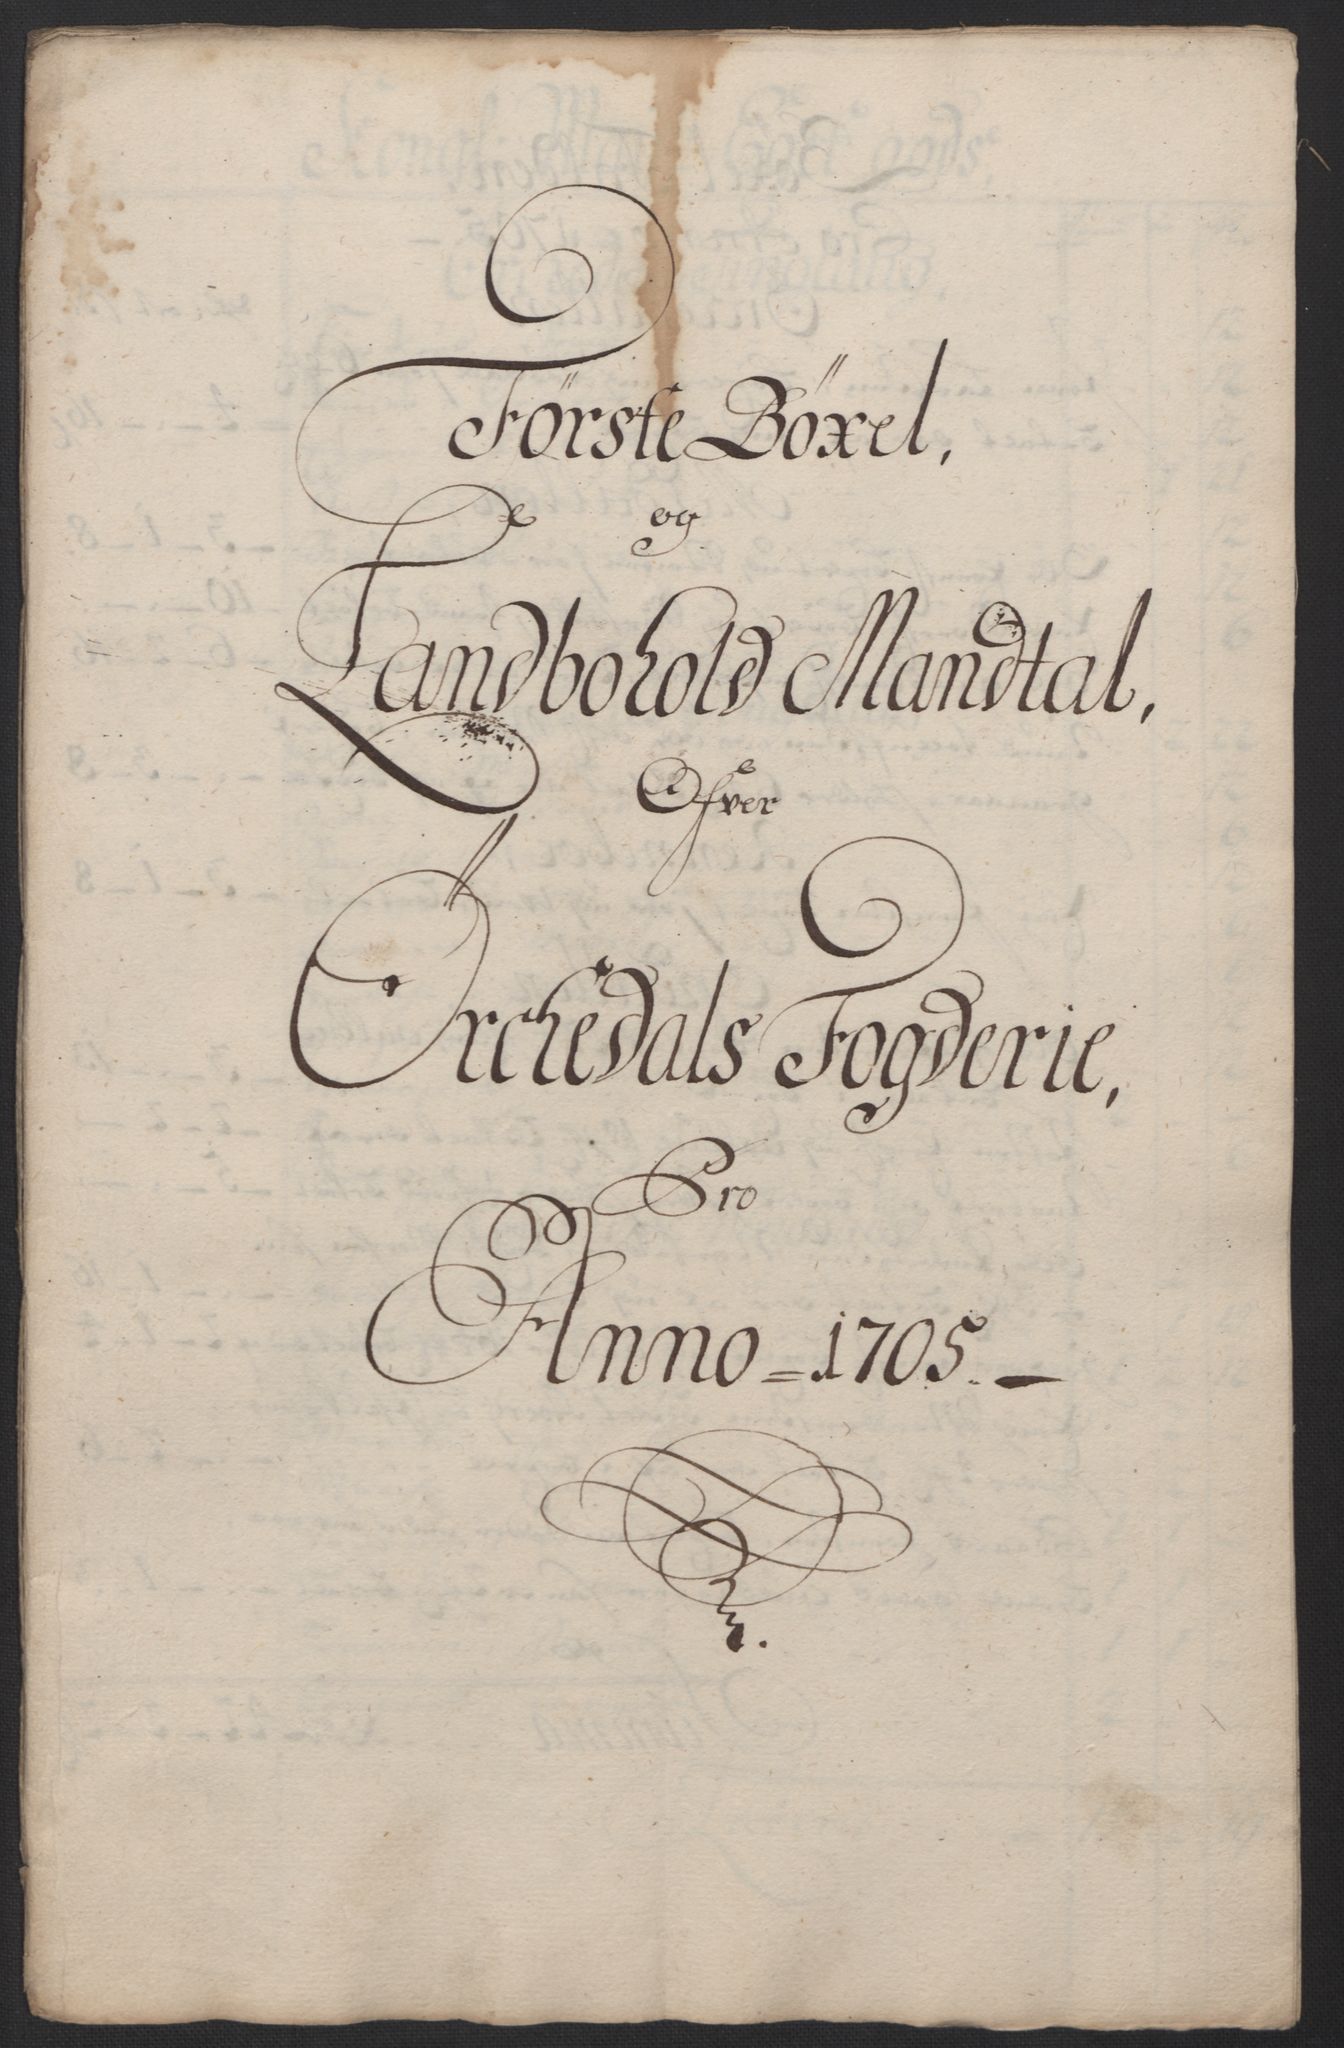 Förste Böxel,
og
Landbohold Mandtal,
Ofver
Örchedals Fogderie,
Pro
Anno = 1705. —